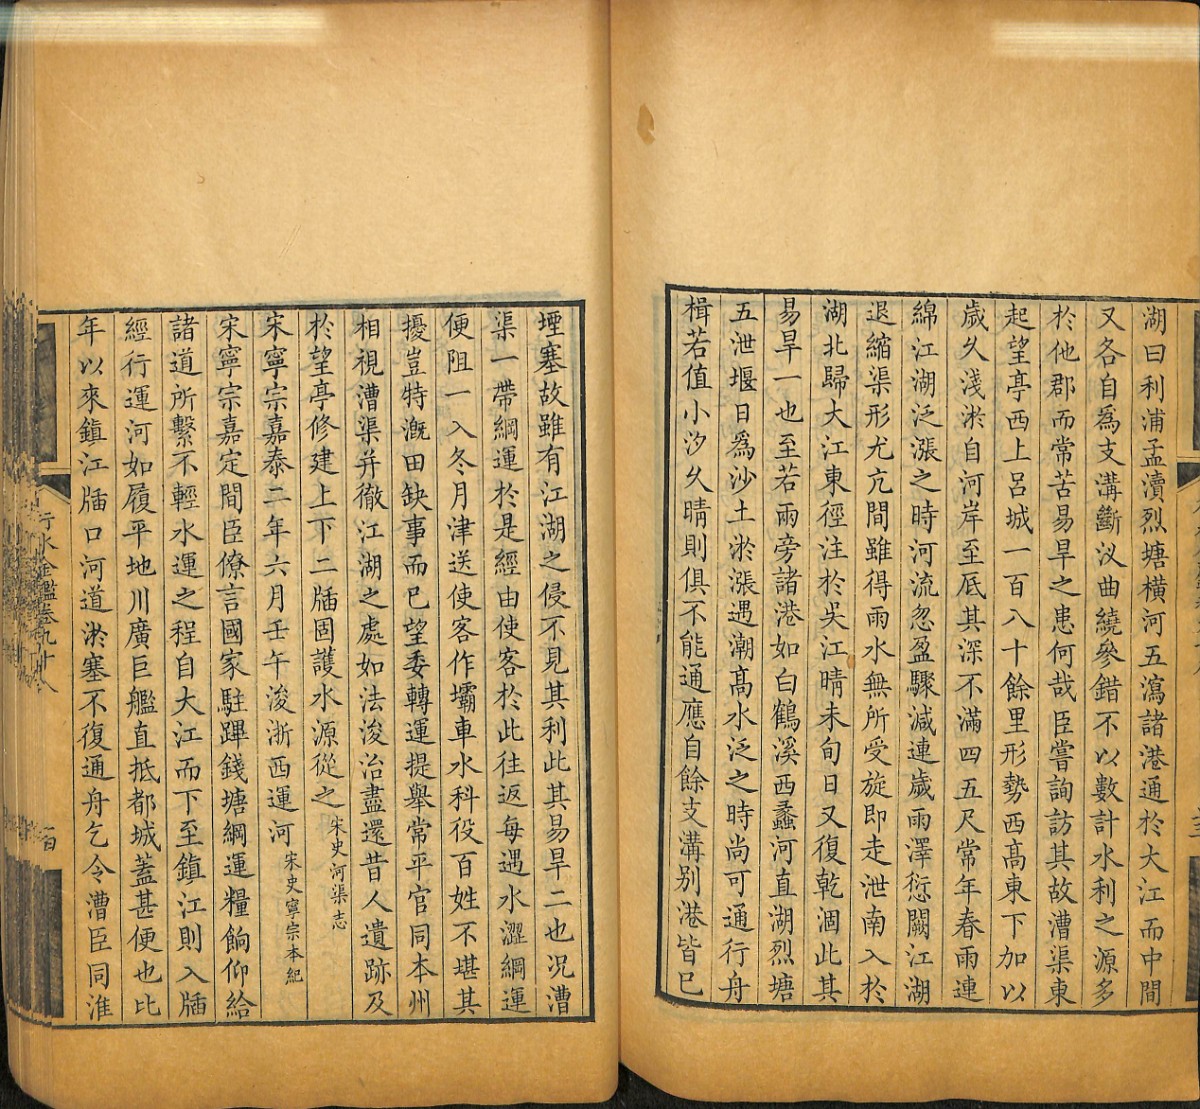 湖曰利浦孟瀆烈塘橫河五瀉諸港通於大江而中間
又各自爲支溝斷汊曲繞參錯不以數計水利之源多
於他郡而常苦易旱之患何哉臣嘗詢訪其故漕渠東
起望亭西上呂城一百八十餘里形勢西高東下加以
歲久淺淤自河岸至底其深不滿四五尺常年春雨連
綿江湖泛漲之時河流忽盈驟減連歲雨澤愆闕江湖
退縮渠形尤亢間雖得雨水無所受旋即走泄南入於
湖北歸大江東徑注於吳江晴未旬日又復乾涸此其
易旱一也至若兩旁諸港如白鶴溪西蠡河直湖烈塘
五泄堰日爲沙土淤漲遇潮高水泛之時尚可通行舟
楫若值小汐久晴則俱不能通應自餘支溝別港皆已
堙塞故雖有江湖之侵不見其利此其易旱二也況漕
渠一帶綱運於是經由使客於此往返每遇水澀綱運
便阻一入冬月津送使客作壩車水科役百姓不堪其
擾豈特溉田缺事而已望委轉運提舉常平官同本州
相視漕渠并徹江湖之處如法浚治盡還昔人遺跡及
於望亭修建上下二牐固護水源從之 宋史河渠志
宋寧宗嘉泰二年六月壬午浚浙西運河 宋史寧宗本紀
宋寧宗嘉定間臣僚言國家駐蹕錢塘綱運糧餉仰給
諸道所繫不輕水運之程自大江而下至鎮江則入牐
經行運河如履平地川廣巨艦直抵都城蓋甚便也比
年以來鎮江牐口河道淤塞不復通舟乞令漕臣同淮
行水金鑑卷九十八